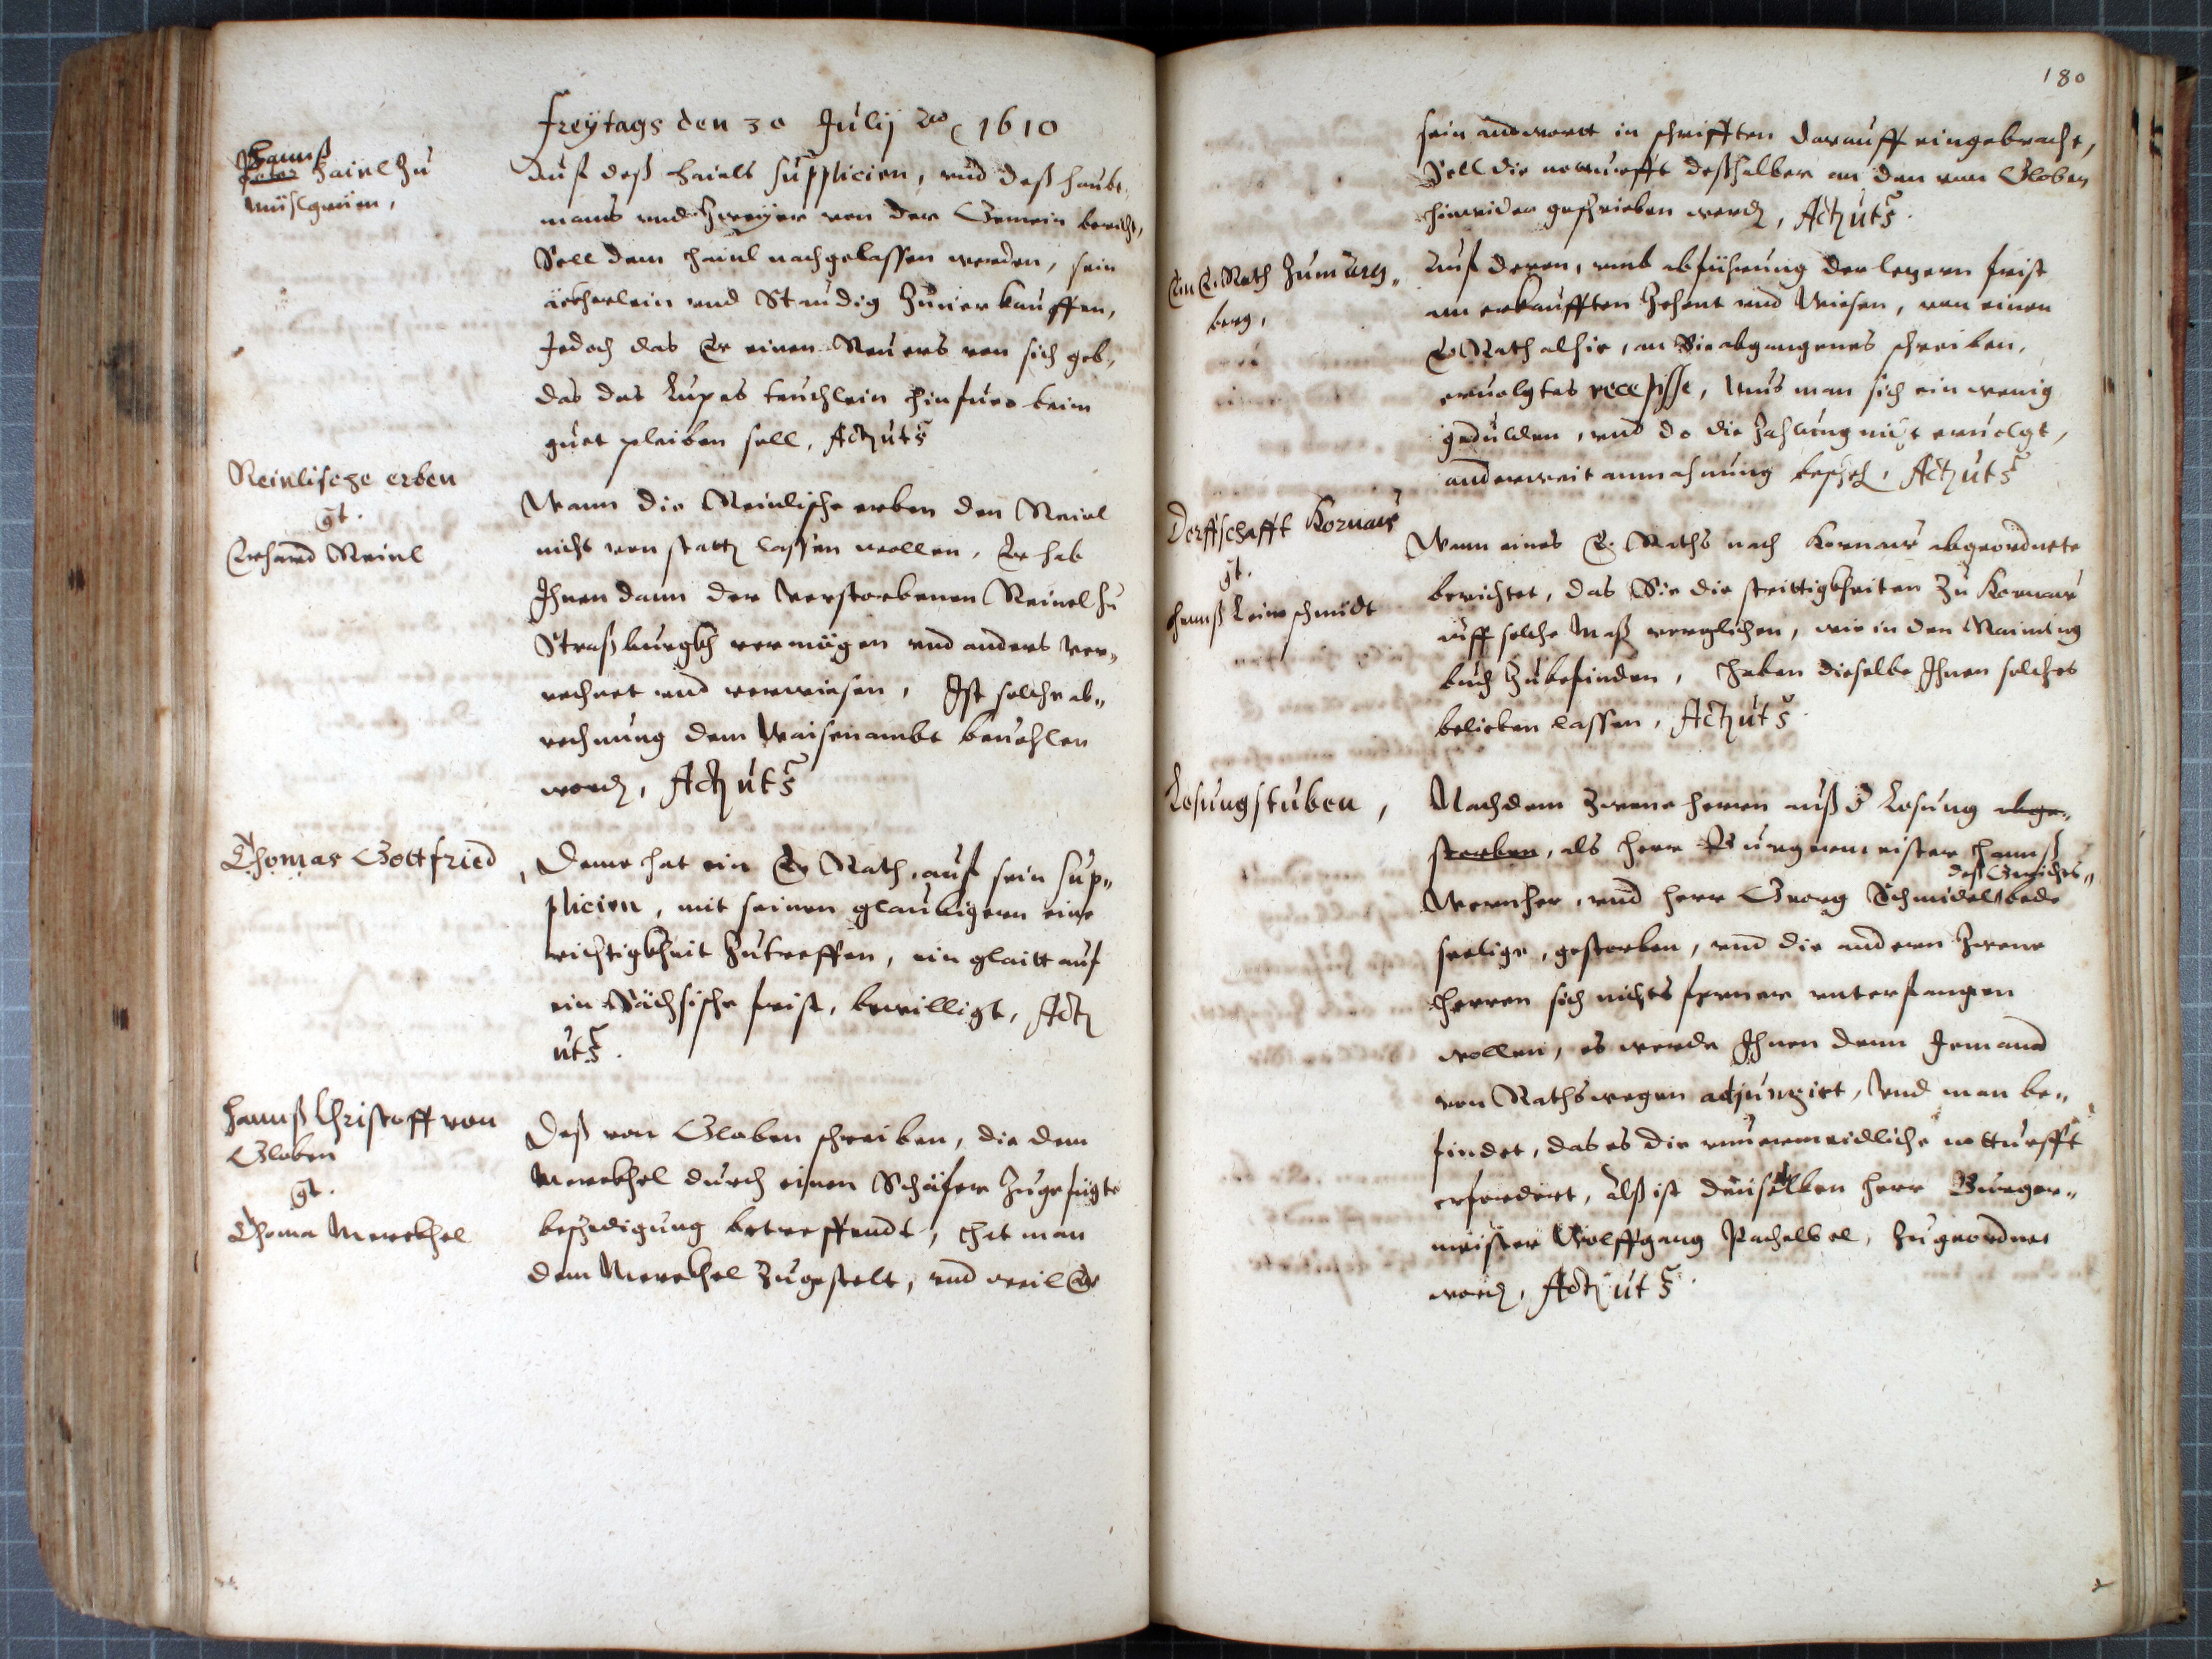 Freÿtags den 30 Julij Ao 1610
Hannß
Peter Hainl Zu
Mülgruen,
Auf deß Hainls Supplicirn, vnd deß Haubt„
mans vnd Zweÿer von der Gemein bericht,
Soll dem Hainl nachgelassen werden, sein
äckherlein vnd Staudig Zuuerkauffen,
Jedoch das Er einen Reuers von sich geb,
das das teuchlein hinfuro beim
guet pleiben soll, Actz uts
Reinlische erben
gt.
Erhard Reinl
Wann die Reinlische erben den Reinl
nicht von statt lassen wollen, Er hab
Ihnen dann der Verstorbenen Reinel Zu
Straßburgkh vermögen vnd anders ver„
rechnet vnd verwiesen, Ist solche ab„
rechnung dem Waisenambt beuohlen
word, Actz uts
Thomas Gottfried,
Deme hat ein E. Rath, auf sein Sup„
plicirn, mit seinen glaubigern eine
richtigkheit Zutreffen, ein glaitt auf
ein Sächsische frist, bewilligt, Actz
uts.
Hannß Christoff von
Globen
gt.
Thoma Merckhel
Deß von Globen schreiben, die dem
Merckhel durch einen Schäfer Zugefügte
beschedigung betreffendt, hat man
dem Merckhel Zugestelt, vnd weil Er
180
sein andtwortt in schrifften darauff eingebracht,
Soll die notturfft deßhalber an den von Globen
hinwider geschrieben werd, Actz uts.
Ein E. Rath Zum
berg,
Auf deren, vmb abführung der letzern frist
am erkaufften Zehent vnd Wiesen, von einen
E. Rath alhie, an Sie abgangenes schreiben,
eruolgtes recepisse, Mus man sich ein wenig
gedulden, vnd do die Zahlung nicht eruolgt,
anderweit anmahnung besch, Actz uts
Dorffschafft Kornaw
gt.
Hannß Leinschmidt
Wann eines E. Raths nach Kornaw abgeordnete
berichtet, das Sie die strittigkheiten Zu Kornaw
auff solche Maß verglichen, wie in den Rainung
buch Zubefinden, Haben dieselbe Ihnen solches
belieben lassen, Actz uts.
Losungstuben,
Nachdem Zwene herrn auß d Losung abge„
storben, als herr Burgermeister Hannß
deß Gerichts„
Wernher, vnd herr Georg Schmidel bede
seelige, gestorben, vnd die andern Zwene
Herren sich nichts ferner vnterfangen
wollen, es werde Ihnen denn Jemand
von Rathswegen adjungirt, Vnd man be„
findet, das es die vnuermeidliche notturfft
erfordert, Alß ist denselben herr Burger„
meister Wolffgang Pachelbel, Zugeordnet
word, Actz uts.